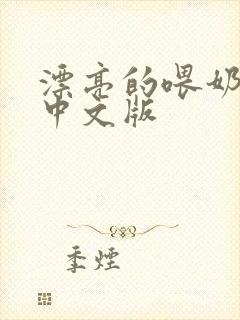 漂亮的喂奶
中文版
季煙